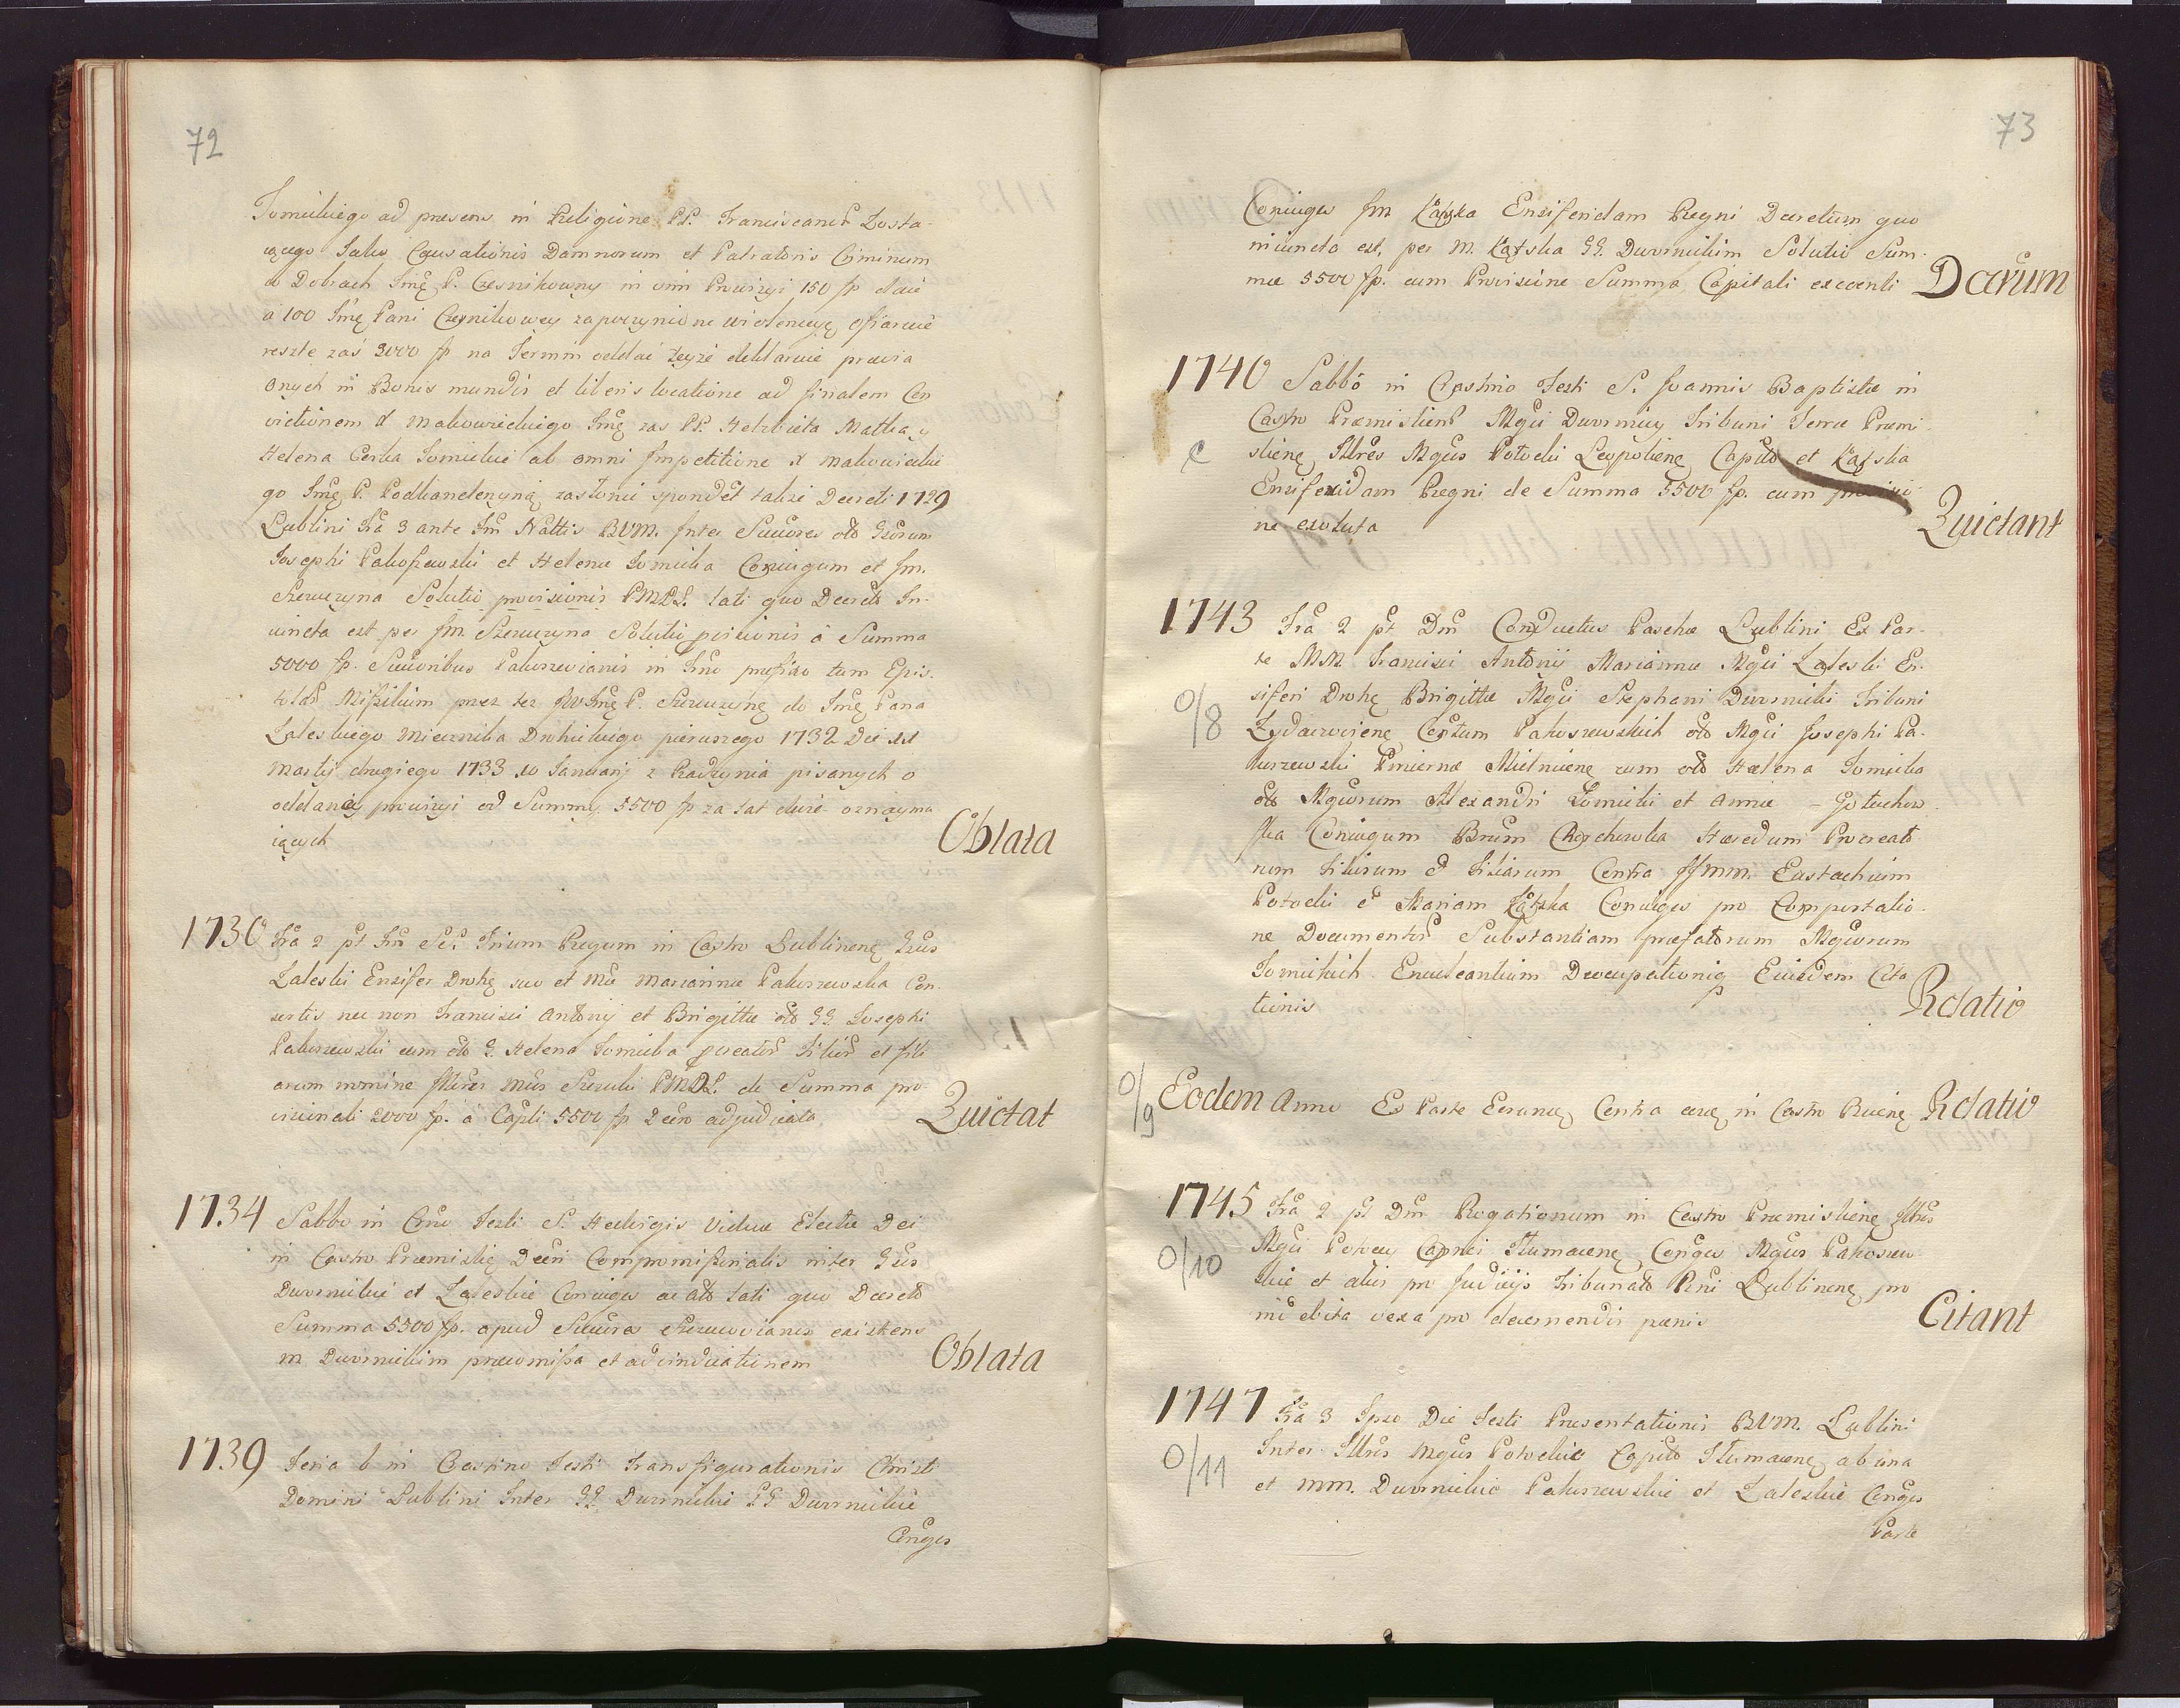 72
Tomickiego ad praesens in Religione PP. Franciscanor Zosta-
iącego Jako Causationis Damnorum et Patratoris Criminum
w Dobrach Jmę P. Czesnikowny in vim Prowizyi 150 fp daie
a 100 Jmę Pani Czesnikowey za poczynione wiolencye ofiaruie
reszte zaś 3000 fp na Termin oddać teyze deklaruie praevia
onych in Bonis mundis et liberis locatione ad finalem Con
victionem X Makowieckiego Jmę zas PP. Helzbieta Matka y
Helena Corka Tomickie ab omni Impetitione X Makowieckie
go Jmę P. Podkanclerzyną zastonić spondet takze Decreti 1729
Lublini Fra 3 ante Fm Nattis BVM. Inter Succres olo Gsorum
Josephi Pakoszewski et Helenae Tomicka Coniugum et Jm.
Szczuczyna Solutio provisionis PMDL. lati quo Decreto In-
iuncta est per Jm Szczuczyna Solutio provisionis a Summa
5000 fp. Succoribus Pakoszewianis in Fno praefixo tum Epis-
tolar Missilium przez tez JWJmę P. Szczuczynę do Jmę Pana
Zaleskiego Miecznika Drohickiego pierwszego 1732 Die
Martij drugiego 1733 10 Januarij z Radzynia pisanych o
oddaniu prowizyi od Summy 5500 fp za lat dwie oznayma
iących
Oblata
1730 Fra 2 pt Fm SS. Trium Regum in Castro Lublinenę Gsus
Zaleski Ensifer Drohę suo et Mae Mariannae Pakoszewska Con-
sortis nec non Francisci Antonij et Brigittae olo GG Josephi
Pakoszewski cum olo G. Helena Tomicka procreator Filior et fili
arum nomine Illres Mcos Szczuki PMDL. de Summa pro-
visionali 2000 fp. a Capli 5500 fp Decreto adjudicata
Quietat
1734 Sabbo in Crno Festi S. Hedvigis Viduae Electae Dei
in Castro Praemislię Decri Compromissorialis inter Gsos
Dwernickie et Zaleskie Coniuges ac alo lati quo Decreto
Summa 5500 fp. apud Succres Szczucovianos existens
M. Dwernickim praeomissa et ad vindicationem
Oblata
1739 Feria 6 in Crastino Festi Transfigurationis Christi
Domini Lublini Inter GG Dwernickie GG Dwernickie
Conges
73
Coniuges Jm Kątska Ensiferidam Regni Decretum quo
iniuncta est, per M. Kątska GG. Dwernickim Solutio Sum-
mae 5500 fp. cum Provisione Summa Capitali excrescenti
Dcrum
1740 Sabbo in Crastino Festi S. Joannis Baptistae in
Castro Praemisliens Mgci Dwernicy Tribuni Terrae Praemi-
slienę Illres Mgcos Potocki Leopolienę Capito et Kątska
Ensiferidam Regni de Summa 5500 fp. cum provisio-
ne exoluta
Quietant
1743 Fra 2 pt Dm Conductus Paschae Lublini Ex Par-
te MM. Francisci Antonij Mariannae Mgci Zaleski En-
siferi Drohę Brigittae Mgci Stephani Dwernicki Tribuni
0/8
Zydaczovienę Consortum Pakoszewskich olo Mgci Josephi Pa-
koszewski Pincernae Mielnicenę cum olo Helena Tomicka
olo Mgcorum Alexandri Tomicki et Annae – Goluchow
ska Coniugum Brum Chorchowka Haeredum Procreato
rum Filiorum et Filiarum Contra JJMM. Eustachium
Potocki et Mariam Kątska Coniuges pro Comportatio-
ne Documentor Substantiam praefatorum Mgcorum
Tomickich Enucleantium Deoccupationiq Eiusdem Cita
tionis
Relatio
0/9
Eodem Anno Ex Parte Eorundę Contra eosdę in Castro Racienę Relatio
1745 Fra 2 pt Dm Rogationum in Castro Praemislienę Illres
0/10
Mgci Potocy Capnei Tlumacenę Conges Mgcos Pakoszew-
skie et alios pro Judicijs Tribunalo Rni Lublinenę pro
indebita vexa pro decernendis paenis
Citant
1747 Fra 3 Ipso Die Festi Praesentationis BVM. Lublini
0/11
Inter Illres Mgcos Potockie Capito Tlumacenę ab una
et MM. Dwernickie Pakoszewskie et Zaleskie Conges
Parte